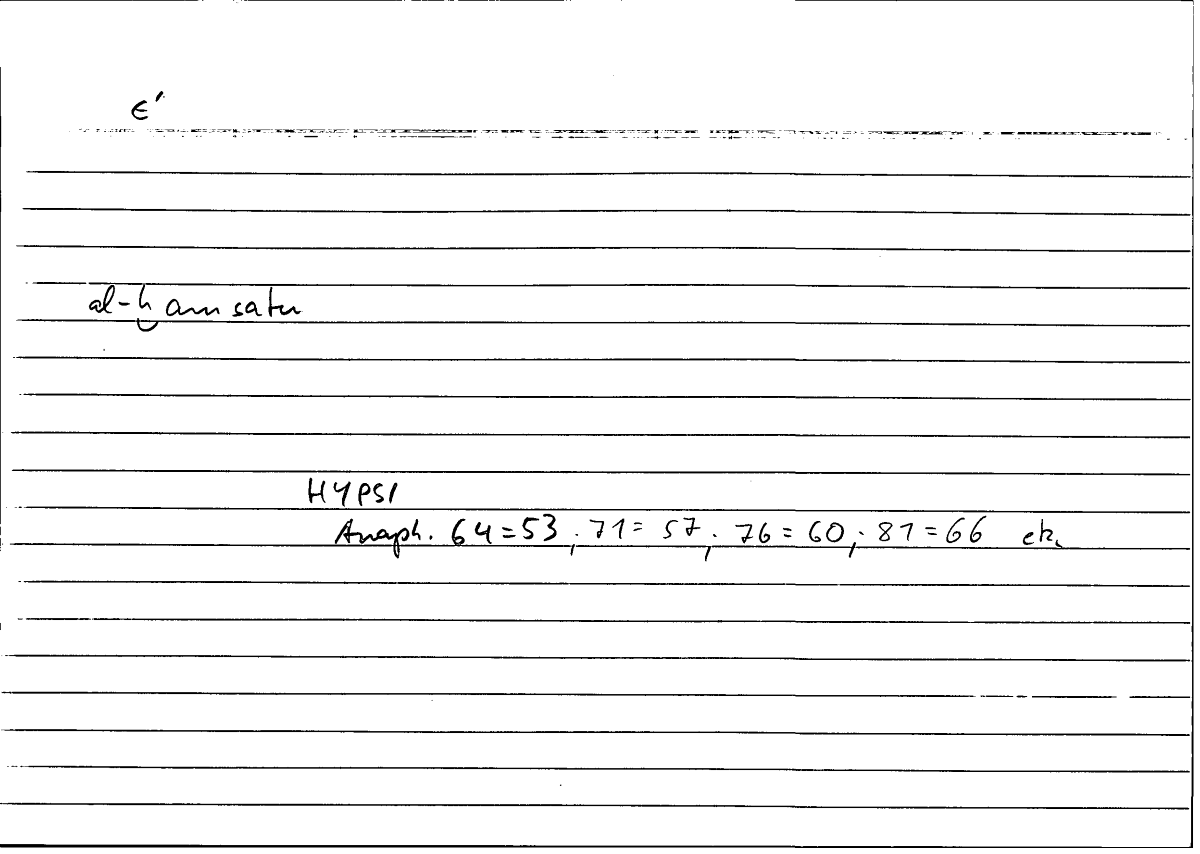 ε′
al-ḫamsatu
HYPSI
Anaph. 64=53; 71=57; 76=60; 81=66 etc.